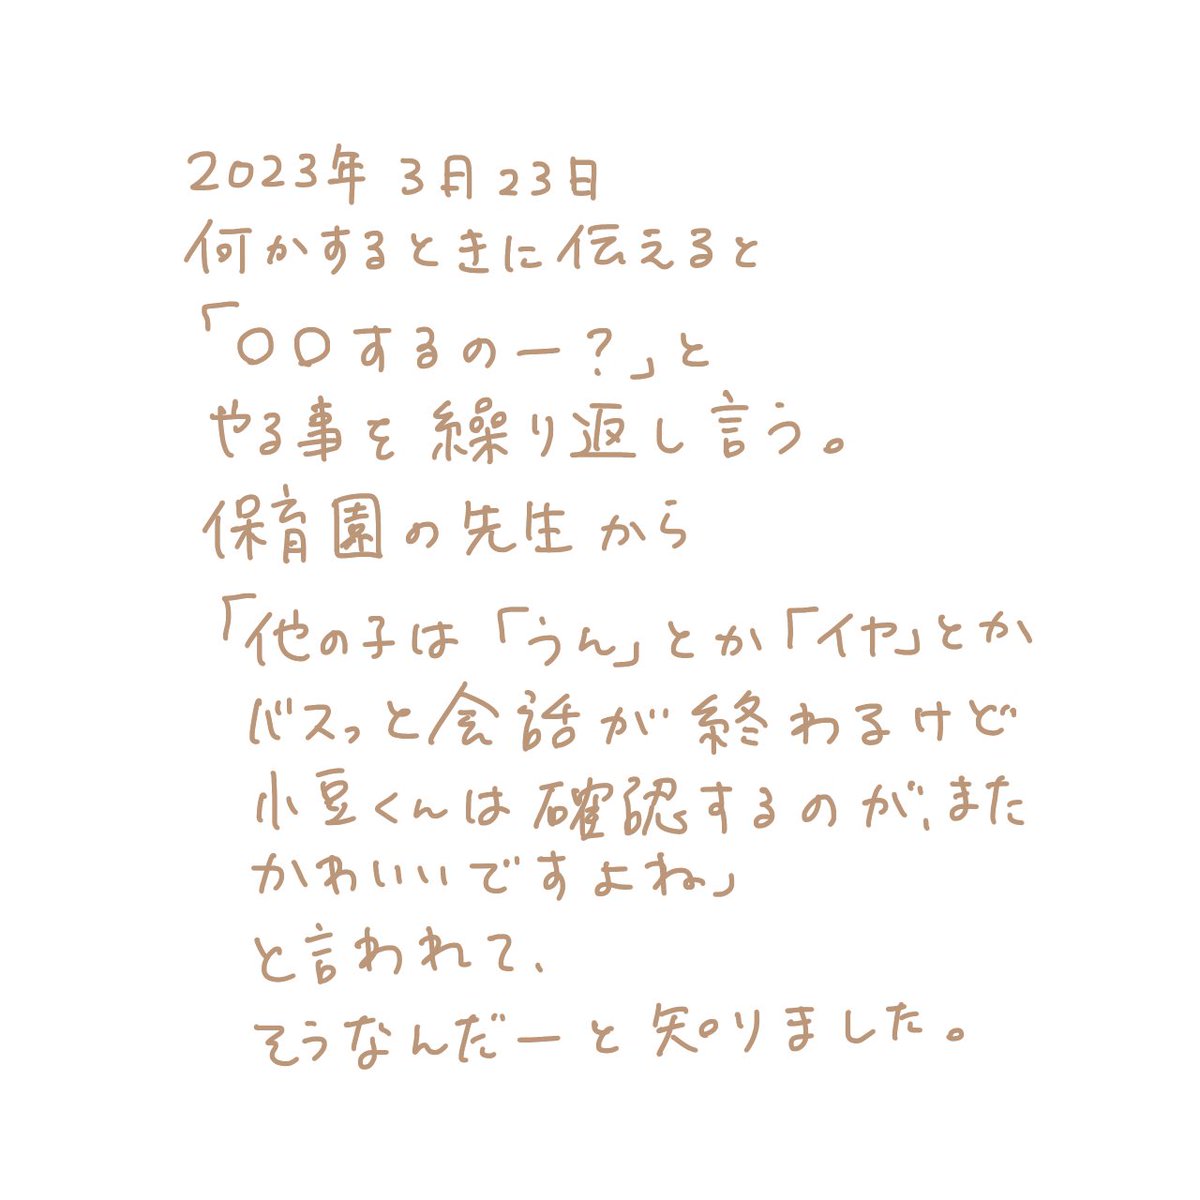 2023年 3月23日
何かするときに伝えると
「〇〇するのー？」と
やる事を繰り返し言う。
保育園の先生から
「他の子は「うん」とか「イヤ」とか
バスっと会話が終わるけど
小豆くんは確認するのが、また
かわいいですよね」
と言われて、
そうなんだーと知りました。